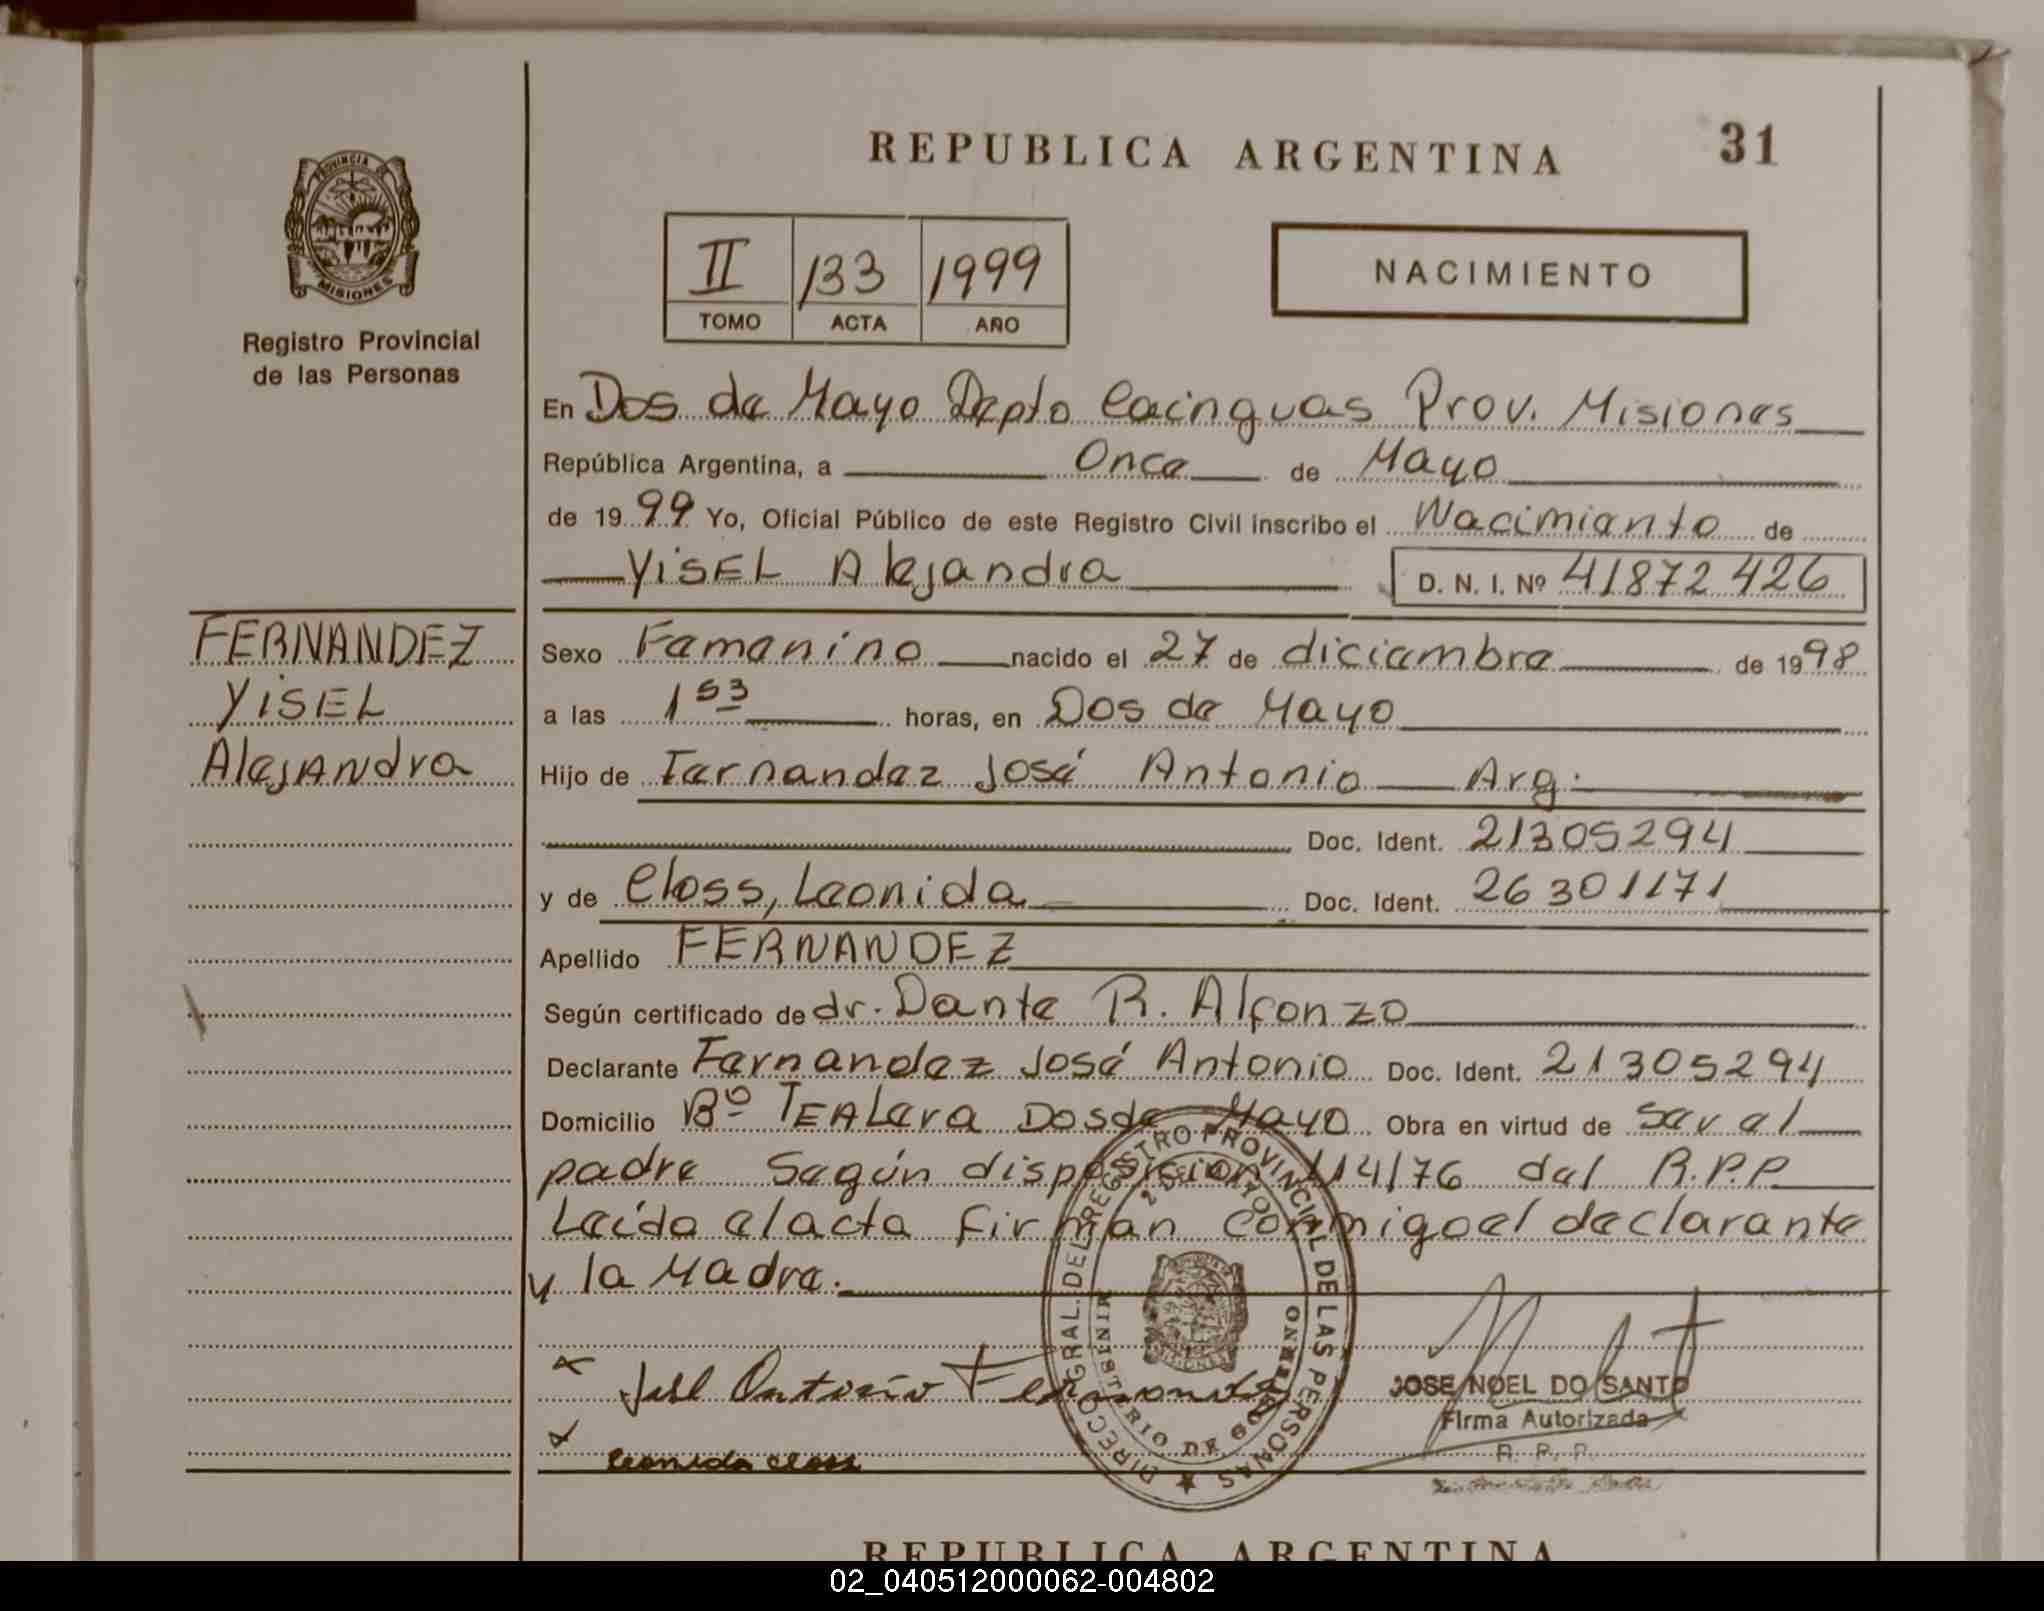 REPUBLICA ARGENTINA
31
PROVINCIA DE
MISIONES
Registro Provincial
de las Personas
II 133 1999
TOMO ACTA AÑO
NACIMIENTO
En Dos de Mayo Depto Cainguas Prov. Misiones
República Argentina, a Once de Mayo
de 1999 Yo, Oficial Público de este Registro Civil inscribo el Nacimiento de
YISEL Alejandra D. N. I. Nº 41872426
FERNANDEZ
YISEL
Alejandra
Sexo Femenino nacido el 27 de diciembre de 1998
a las 1 53 horas, en Dos de Mayo
Hijo de Fernandez José Antonio Arg.
Doc. Ident. 21305294
y de Closs, Leonida Doc. Ident. 26301171
Apellido FERNANDEZ
Según certificado de dr. Dante R. Alfonzo
Declarante Fernandez José Antonio Doc. Ident. 21305294
Domicilio Bº TEALera Dos de Mayo Obra en virtud de ser el
padre Según disposision 114/76 del R.P.P.
Leída el acta firman conmigo el declarante
y la Madre.
DIRECC. GRAL. DEL REGISTRO PROVINCIAL DE LAS PERSONAS
2 DE MAYO
MINISTERIO DE GOBIERNO
José Antonio Fernandez
JOSE NOEL DO SANTO
Firma Autorizada
R. P. P.
Leonida Closs
REPUBLICA ARGENTINA
02_040512000062-004802